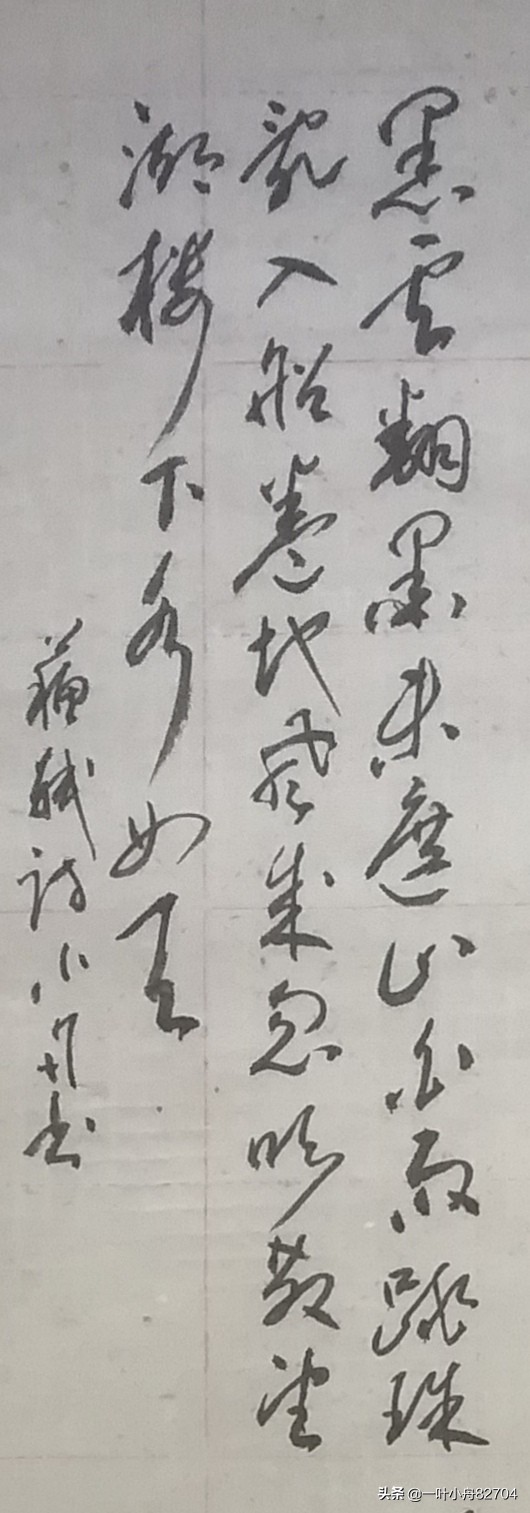 黑云翻墨未遮山白雨跳珠
亂入船卷地风来忽吹散望
湖楼下水如天
蘇軾诗小舟书
头条 @一叶小舟82704